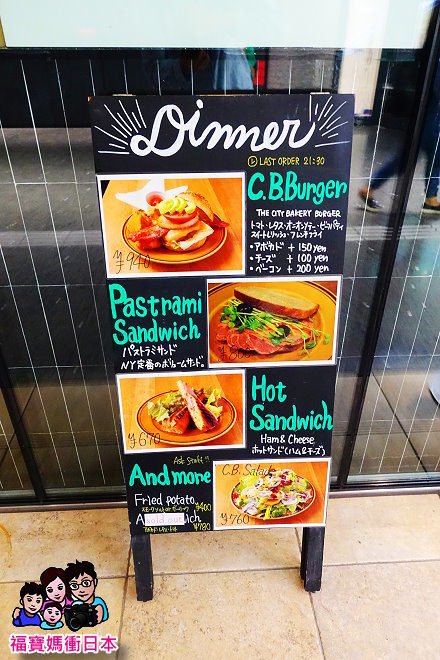 Dinner
LAST ORDER 21:30
C.B.Burger
THE CITY BAKERY BURGER
トマト・レタス・オニオンソテー・ビーフパティ
スイートレリッシュ・フレンチフライ
・アボカド + 150 yen
・チーズ + 100 yen
・ベーコン + 200 yen
¥940
Pastrami
Sandwich
パストラミサンド
NY定番のボリュームサンド。
¥860
Hot
Sandwich
HAM & Cheese
ホットサンド(ハム&チーズ)
¥670
Ask Staff!!
And more
Fried potato
¥400
sold out
¥780
C.B. Salad
¥760
福寶媽衝日本